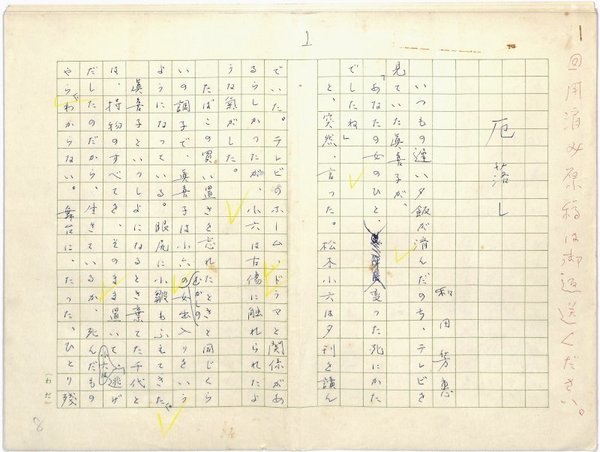 1
回用済み原稿は御返送ください。
1
厄落し
和田芳恵
いつもの遅い夕飯が済んだのち、テレビを
見ていた真善子が、
「あなたの女のひと、変った死にかた
でしたね」
と、突然、言った。松本小六は夕刊を読ん
でいた。テレビのホーム・ドラマと関係があ
るらしかったが、小六は古傷に触れられたよ
うな気がした。
たばこの買い置きを忘れたときと同じくら
いの調子で、真善子は小六のむかしの女出入りをいう
ようになっている。眼尻に小皺もふえてきた。
真善子といっしょになるとき棄てた千代と
は、持物のすべてを、そのまま置いて小六は逃げ
だしたのだから、生きているか、死んだもの
やらわからない。舞台に、たったひとり残
(わだ)
8